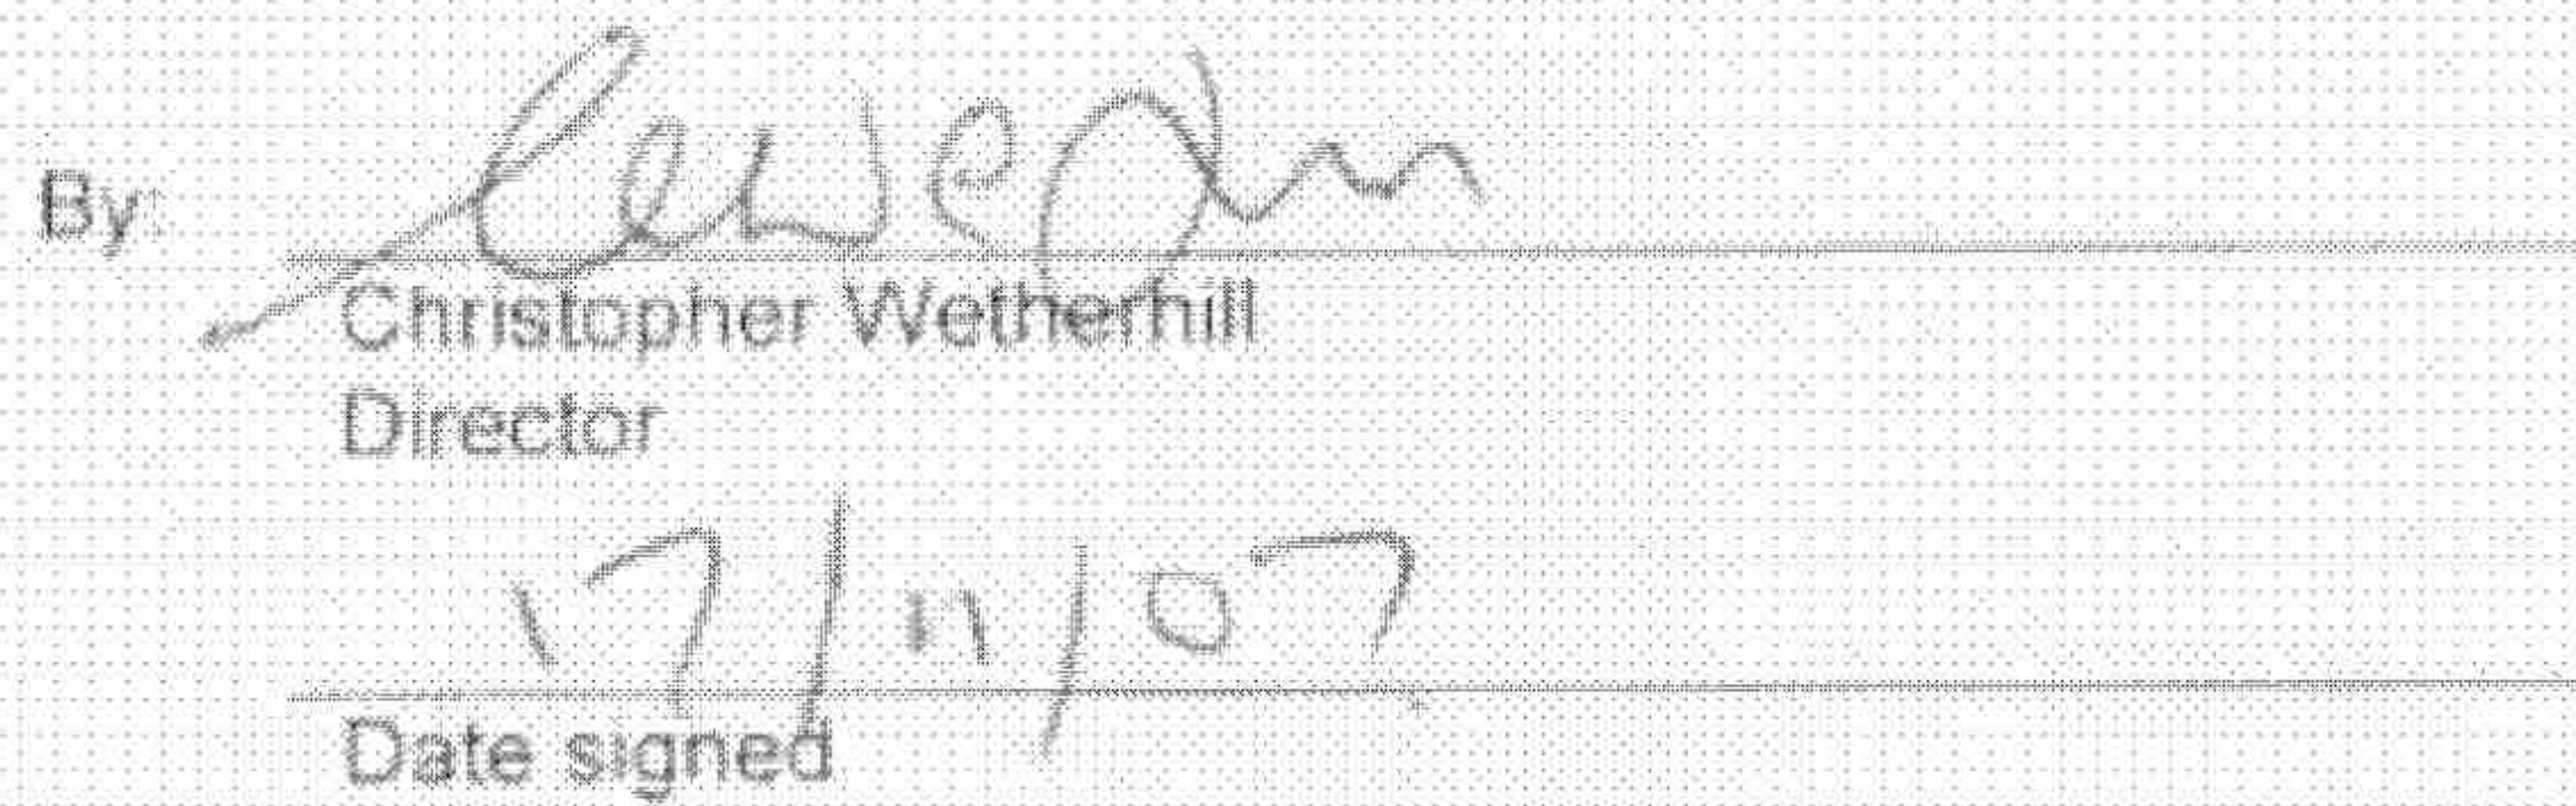 By:
Christopher Wetherhill
Director
17/11/07
Date signed